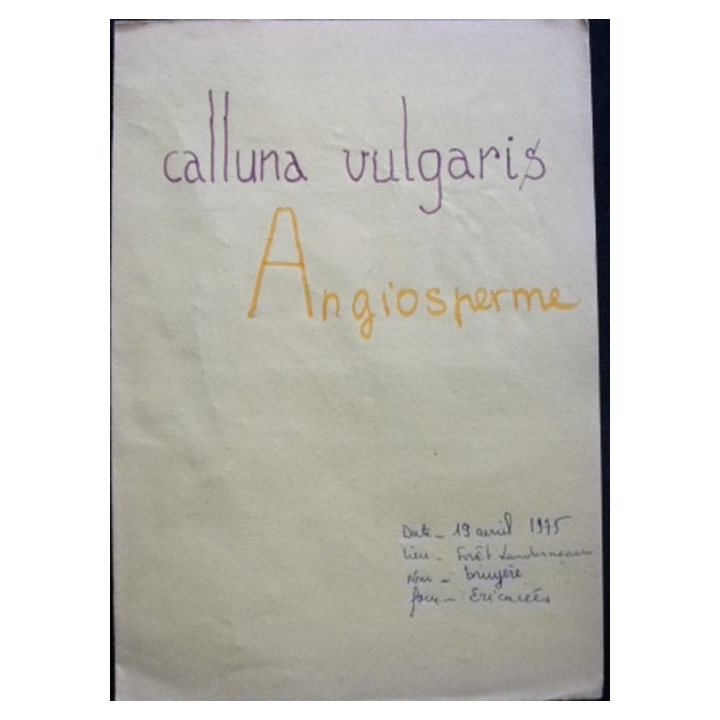 calluna vulgaris
Angiosperme
Date - 19 avril 1975
Lieu - Forêt Landerneau
Nom - bruyère
fam - Ericacées